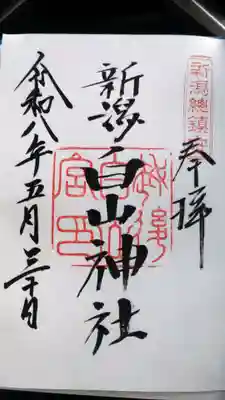 奉拝
新潟総鎮守
新潟白山神社
令和八年五月三十日